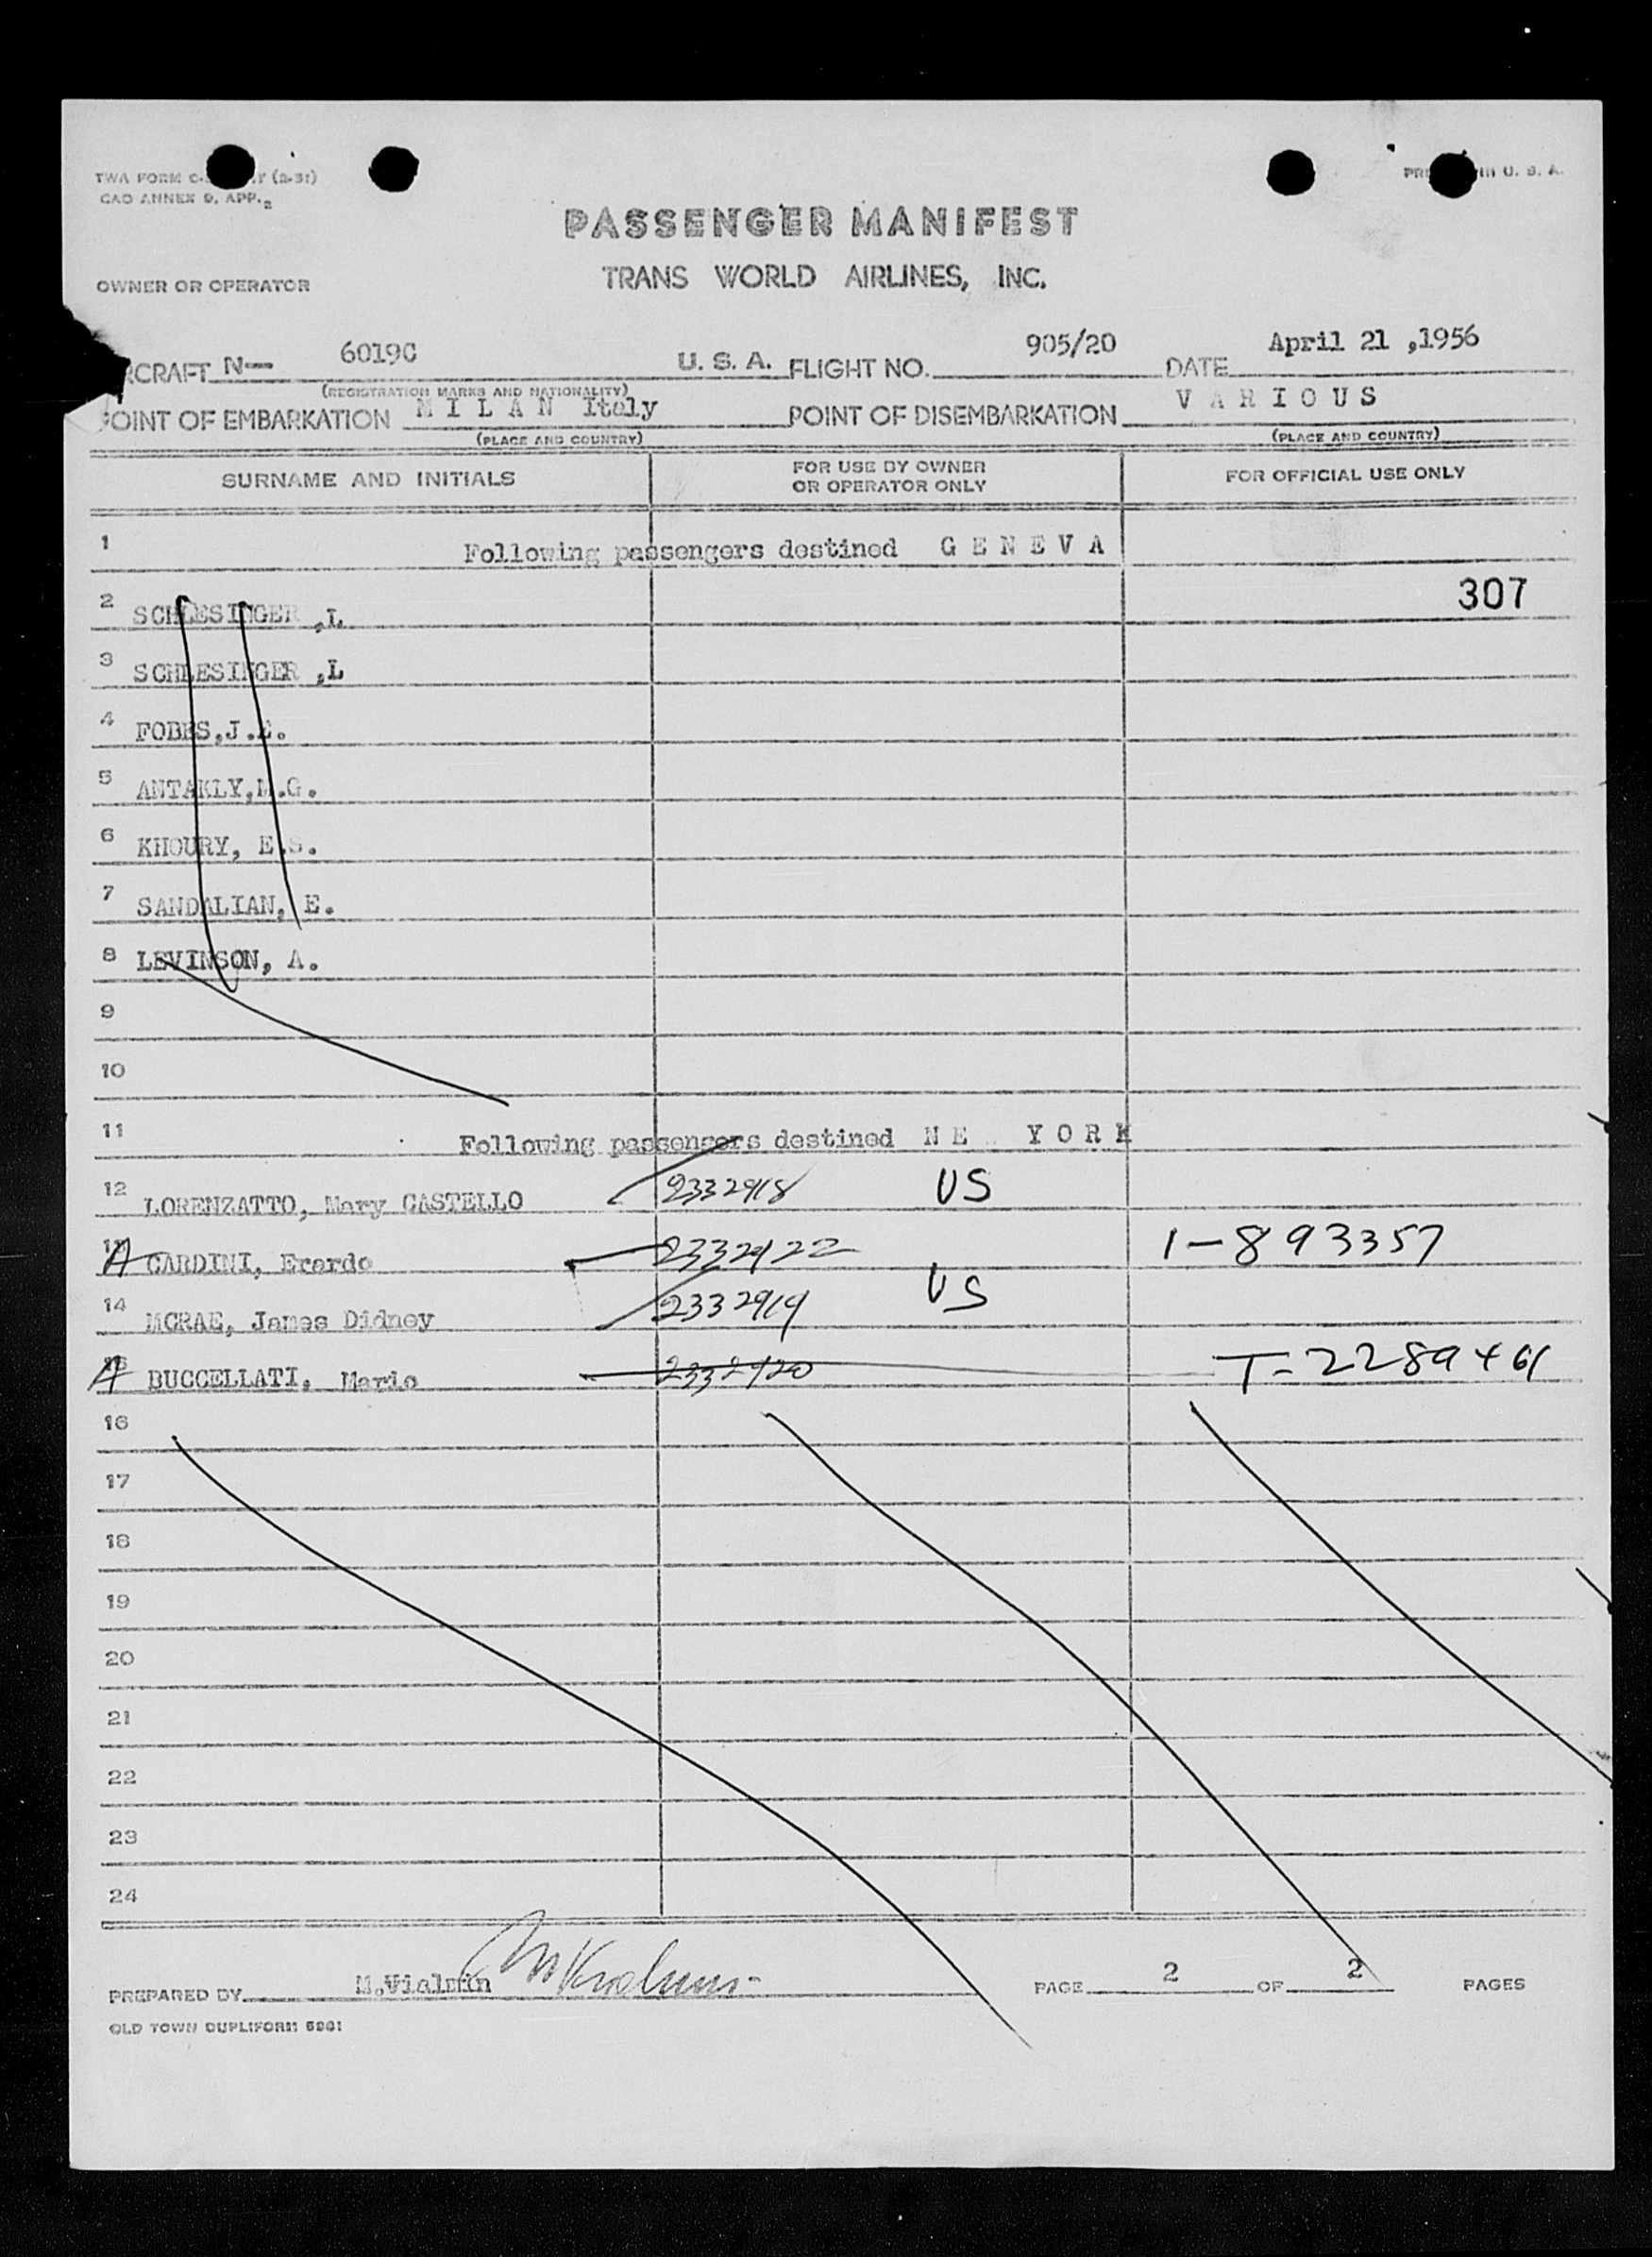 TWA FORM (2-51) PRINTED IN U. S. A.
CAO ANNEX 9, APP. 2
PASSENGER MANIFEST
OWNER OR OPERATOR TRANS WORLD AIRLINES, INC.
RCRAFT N— 6019C U. S. A. FLIGHT NO. 905/20 DATE April 21 ,1956
(REGISTRATION MARKS AND NATIONALITY)
POINT OF EMBARKATION M I L A N Italy POINT OF DISEMBARKATION V A R I O U S
(PLACE AND COUNTRY) (PLACE AND COUNTRY)
SURNAME AND INITIALS FOR USE BY OWNER OR OPERATOR ONLY FOR OFFICIAL USE ONLY
1 Following passengers destined G E N E V A
2 SCHLESINGER ,L 307
3 SCHLESINGER ,L
4 FOBES,J.E.
5 ANTAKLY,M.G.
6 KHOURY, E.S.
7 SANDALIAN, E.
8 LEVINSON, A.
9
10
11 Following passengers destined N E Y O R K
12 LORENZATTO, Mary CASTELLO 2332918 US
13 A CARDINI, Erardo 2332922 1-893357
14 MCRAE, James Didney 2332919 US
15 A BUCCELLATI, Mario 2332920 T-2289461
16
17
18
19
20
21
22
23
24
PREPARED BY M.Vialmin PAGE 2 OF 2 PAGES
OLD TOWN DUPLIFORM